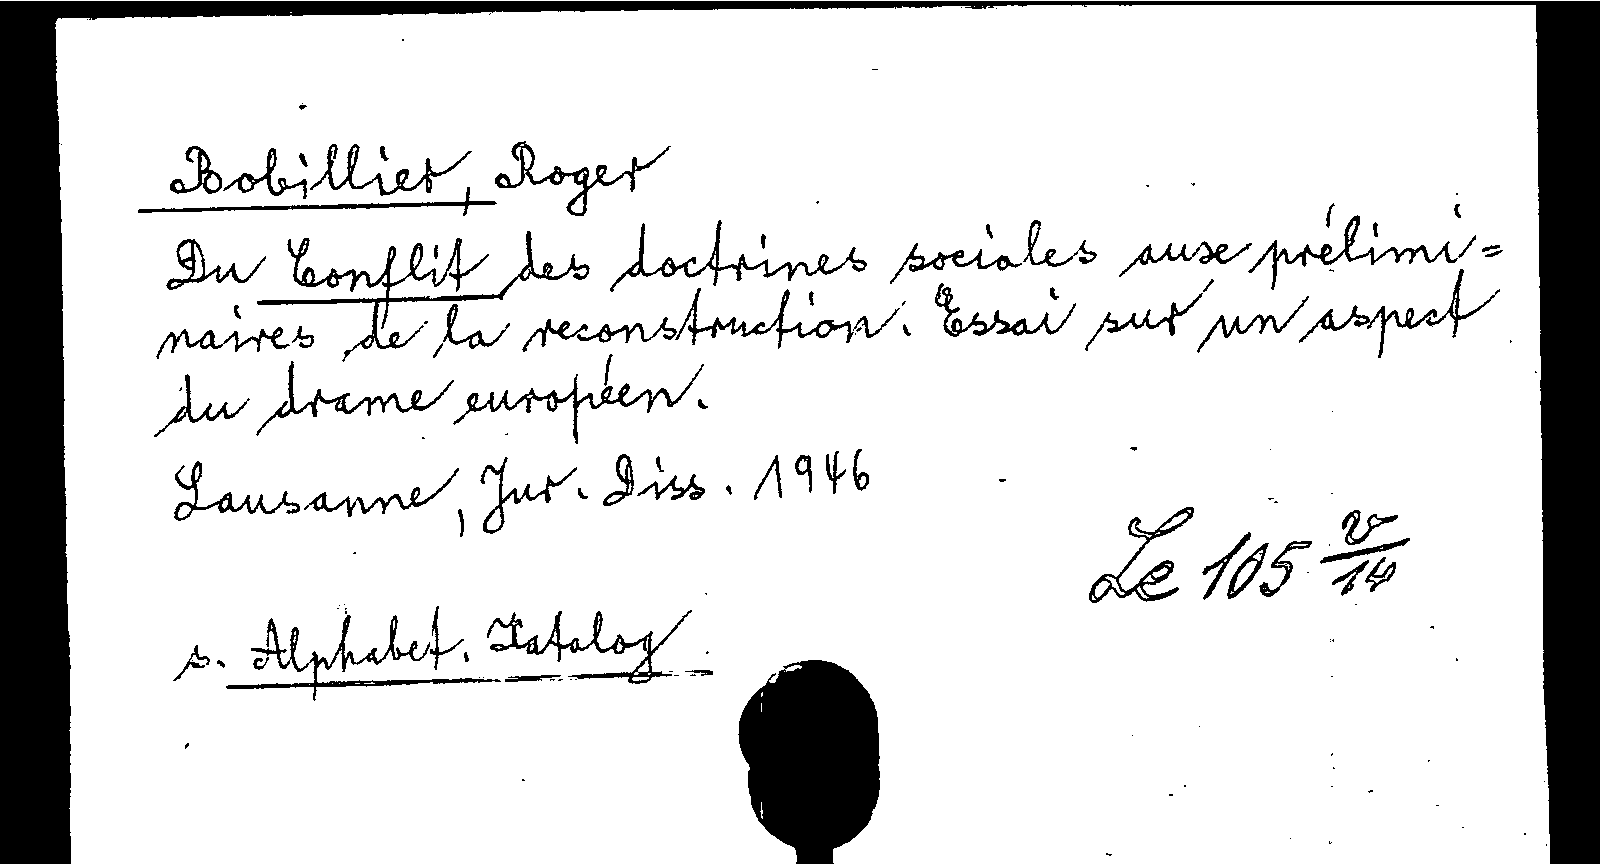 Bobillier, Roger
Du Conflit des doctrines sociales aux prélimi=
naires de la reconstruction. Essai sur un aspect
du drame européen.
Lausanne, Jur. Diss. 1946
Le 105 v/14
s. Alphabet. Katalog